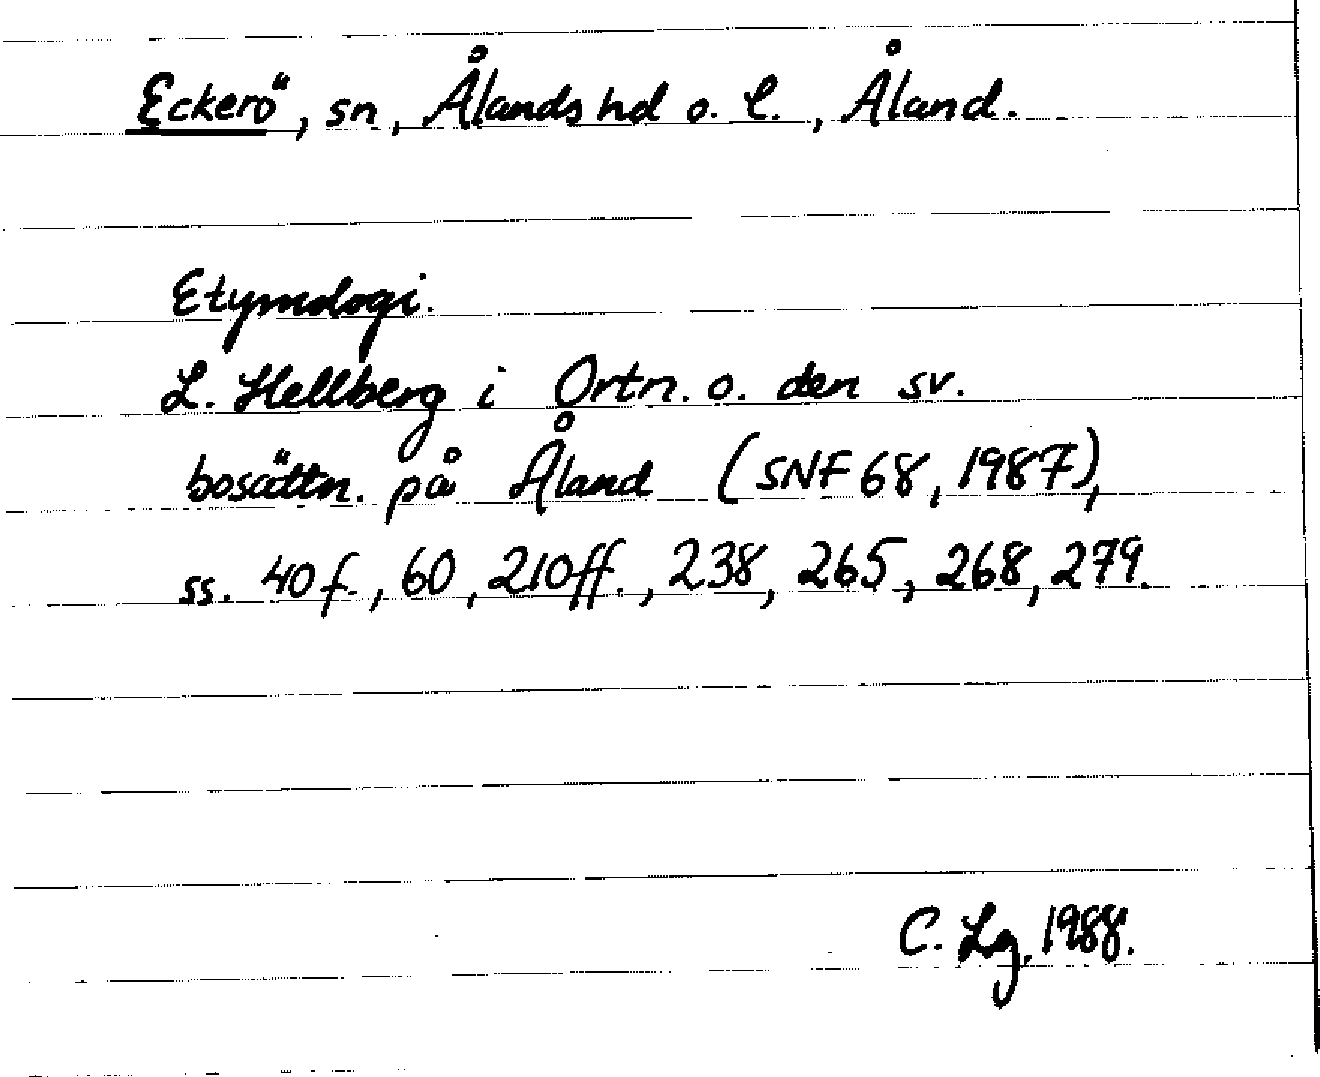 Eckerö, sn, Ålands hd o. l., Åland.
Etymologi.
L. Hellberg i Ortn. o. den sv.
bosättn. på Åland (SNF 68, 1987),
ss. 40 f., 60, 210 ff., 238, 265, 268, 279.
C. Lg. 1988.